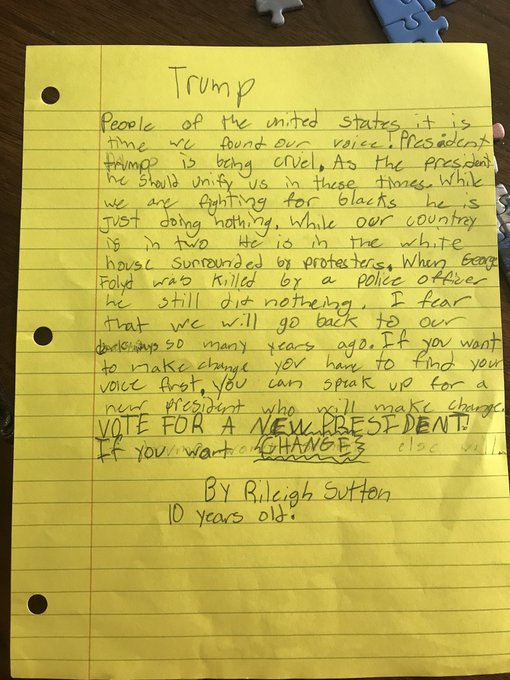 Trump
People of the united states it is
time we found our voice. President
trump is being cruel. As the president
he should unify us in these times. While
we are fighting for blacks he is
just doing nothing. While our country
is in two He is in the white
house surrounded by protesters. When George
Folyd was killed by a police officer
he still did notheing. I fear
that we will go back to our
so many years ago. If you want
to make change you have to find your
voice first. You can speak up for a
new president who will make change.
VOTE FOR A NEW PRESIDENT!
If you want CHANGE
By Rileigh Sutton
10 years old.